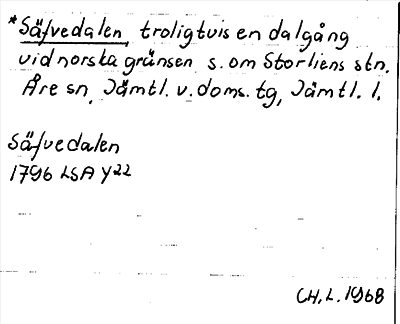 *Säfvedalen, troligtvis en dalgång
vid norska gränsen s. om Storliens stn.
Åre sn, Jämtl. v. doms. tg, Jämtl. l.
Säfvedalen
1796 LSA Y22
CH. L. 1968